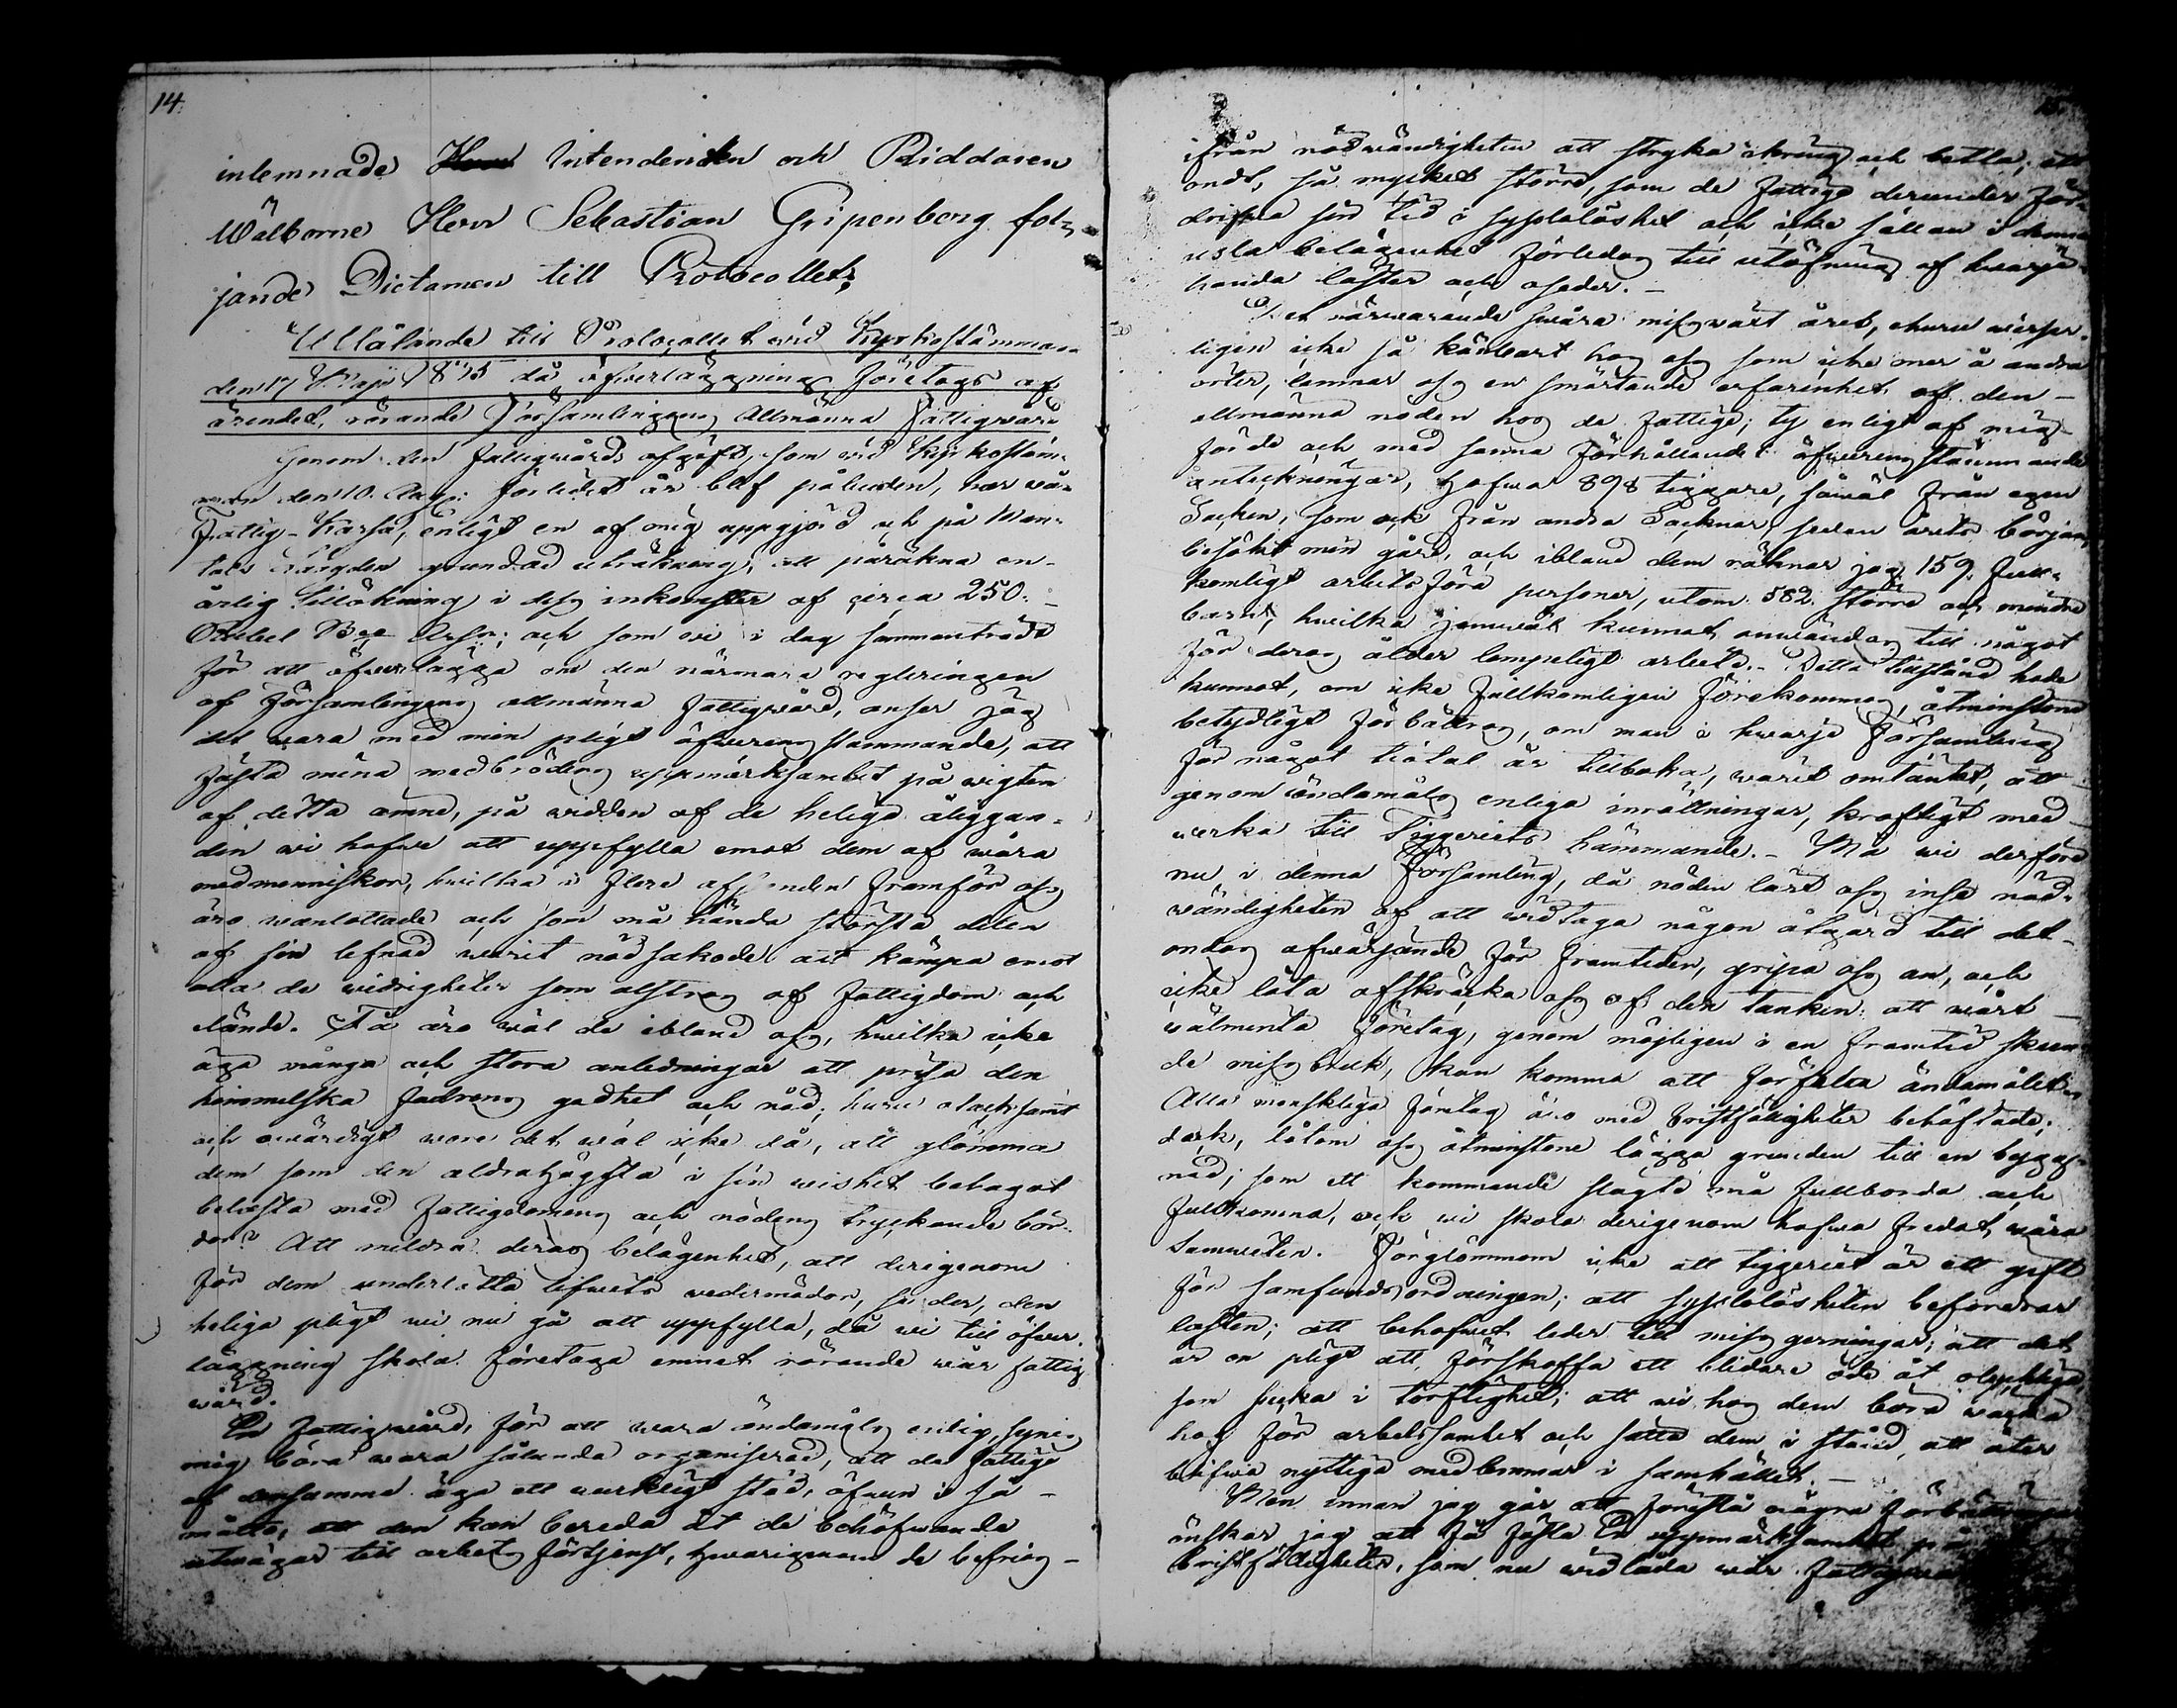 14.
inlemnade Herr Intendenten och Riddaren
Wälborne Herr Sebastian Gripenberg föl-
jande Dictamen till Protocollet;
Utlåtande till Protocollet wid Kyrkostämman
den 17 Maji 1845 då öfwerläggning företogs af
ärendet, rörande Församlingens Allmänna Fattigwård
Genom den Fattigwårds afgift, som wid Kyrkostäm-
man den 10. Aug: förledet år blef påbuden, har wår
Fattig-Kassa, enligt en af mig uppgjord och på Man-
tals Längden grundad uträkning, att påräkna en
årlig tillökning i dess inkomster af circa 250.
Rubel Bco Assn; och som wi i dag sammanträdt
för att öfwerlägga om den närmare regleringen
af Församlingens allmänna Fattigwård, anser jag
det wara med min pligt öfwerensstämmande, att
fästa mina medbröders uppmärksamhet på wigten
af detta ämne, på widden af de heliga åliggan-
den wi hafwe att uppfylla emot dem af wåra
medmenniskor, hwilka i flere afseenden framför oss
äro wanlottade och som må hända största delen
af sin lefnad warit nödsakade att kämpa emot
alla de widrigheter som alstras af fattigdom och
elände. Få äro wäl de ibland oss, hwilka icke
äga många och stora anledningar att prisa den
himmelska Fadrens godhet och nåd; huru otacksamt
och owärdigt wore det wäl icke då, att glömma
dem som den aldrahögsta i sin wishet behagat
belasta med Fattigdomens och nödens tryckande bör-
dor? Att mildra deras belägenhet, att derigenom
för dem underlätta lifwets wedermödor, se der, den
heliga pligt wi nu gå att uppfylla, då wi till öfwer-
läggning skola företaga ämnet rörande wår fattig
wård.
En Fattigwård, för att wara ändamåls enlig, synes
mig böra wara sålunda organiserad, att de fattige
af densamma äga ett werkligt stöd, äfwen i så
måtto, att den kan bereda åt de behöfwande
utwägar till arbets förtjenst, hwarigenom de befrias
15.
ifrån nödwändigheten att stryka ikring och betla; ett
ondt, så mycket större, som de Fattige derunder för-
drifwa sin tid i sysslolöshet och icke sällan i denna
usla belägenhet förledas till utöfning af hwarje-
handa laster och oseder.
Det närwarande swåra missväxt året, churu wisser-
ligen icke så kännbart hos oss som icke mer å andra
orter, lemnar oss en smärtande erfarenhet af den
allmänna nöden hos de Fattige; ty enligt af mig
förde och med sanna förhållandet öfwerensstämmande
anteckningar, hafwa 898 tiggare, såwäl från egen
Socken, som ock från andra Socknar, sedan årets början
besökt min gård, och ibland dem räknar jag 159. full-
komligt arbetsföra personer, utom 582. större och mindre
barn, hwilka jemwäl kunnat användas till något
för deras ålder lämpeligt arbete. Detta tillstånd hade
kunnat, om icke fullkomligen förekommas, åtminstone
betydligt förbättras, om man i hwarje Församling
för något tiotal år tillbaka, warit omtänkt, att
genom ändamåls enliga inrättningar, kraftigt med-
werka till Tiggeriets hämmande. Må wi derföre
nu i denna Församling, då nöden lärt oss inse nöd-
wändigheten af att widtaga någon åtgärd till det
ondas afwärjande för framtiden, gripa oss an, och
icke låta afskräcka oss af den tanken: att wårt
wälmenta företag, genom möjligen i en framtid skeen-
de missbruk, kan komma att förfela ändamålet.
Alla menskliga företag äro med bristfälligheter behäftade;
dock, låtom oss åtminstone lägga grunden till en bygg-
nad, som ett kommande slägte må fullborda och
fullkomna, och wi skola derigenom hafwa fredat wåra
samweten. Förglömmom icke att tiggeriet är ett gift
för samfundsordningen; att sysslolösheten befordrar
lasten; att behofwet leder till missgerningar; att det
är en pligt att förskaffa ett blidare öde åt olycklige,
som sucka i torftighet; att wi hos dem böra wäcka
hog för arbetsamhet och sätta dem i stånd att åter
blifwa nyttiga medlemmar i samhället.
Men innan jag går att föreslå några förbättringar
önskar jag att få fästa Er uppmärksamhet på
bristfälligheter, som nu widlåda wår Fattigwård